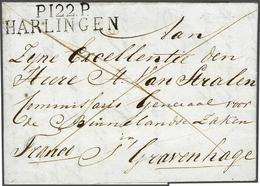 P.122.P.
HARLINGEN
Aan
Zyne Excellentie den
Heere H. Van Stralen
Commissaris Generaal voor
de Binnelandse Zaken
in
Franco S' Gravenhage